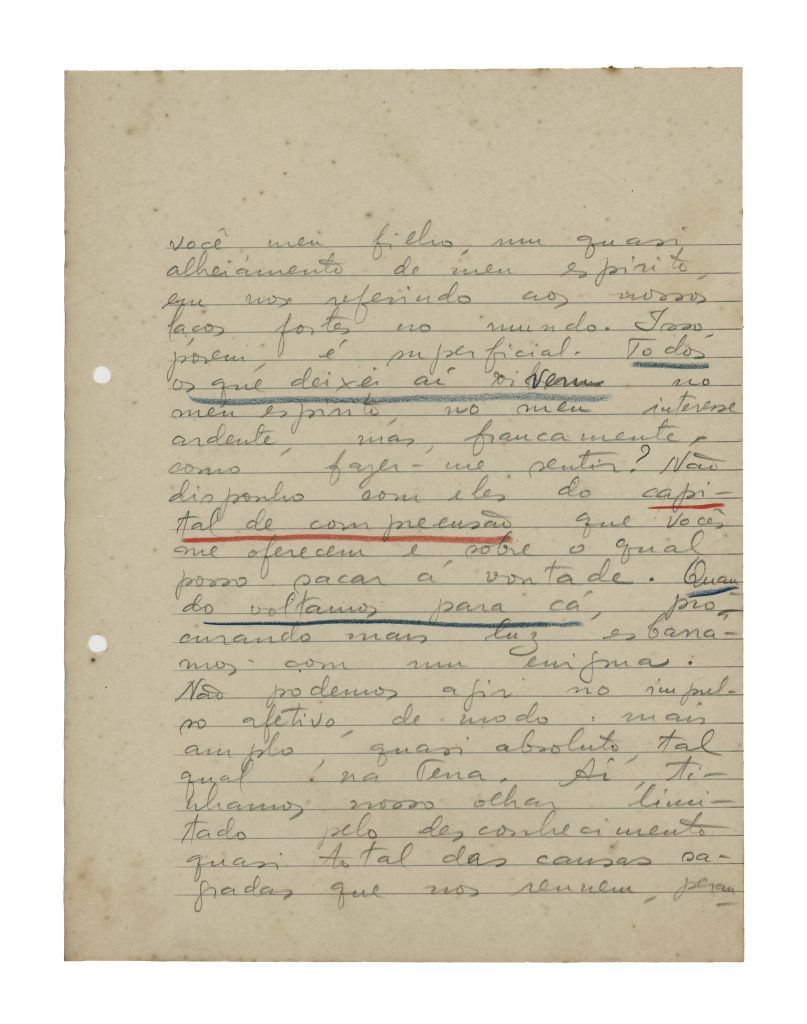 você meu filho, um quasi
alheiámento de meu espirito,
em nos referindo aos nossos
laços fortes no mundo. Isso,
porem, é superficial. Todos
os que deixei aí vivem no
meu espirito, no meu interesse
ardente, mas, francamente,
como fazer-me sentir? Não
disponho com eles do capi-
tal de compreensão que vocês
me oferecem e sobre o qual
posso sacar á vontade. Quan
do voltamos para cá, pro-
curando mais luz esbarrá-
mos com um enigma.
Não podemos agir no impul-
so afetivo, de modo mais
amplo, quasi absoluto, tal
qual na Terra. Aí, tí-
nhamos nosso olhar limi-
tado pelo desconhecimento
quasi total das causas sa-
gradas que nos reunem,